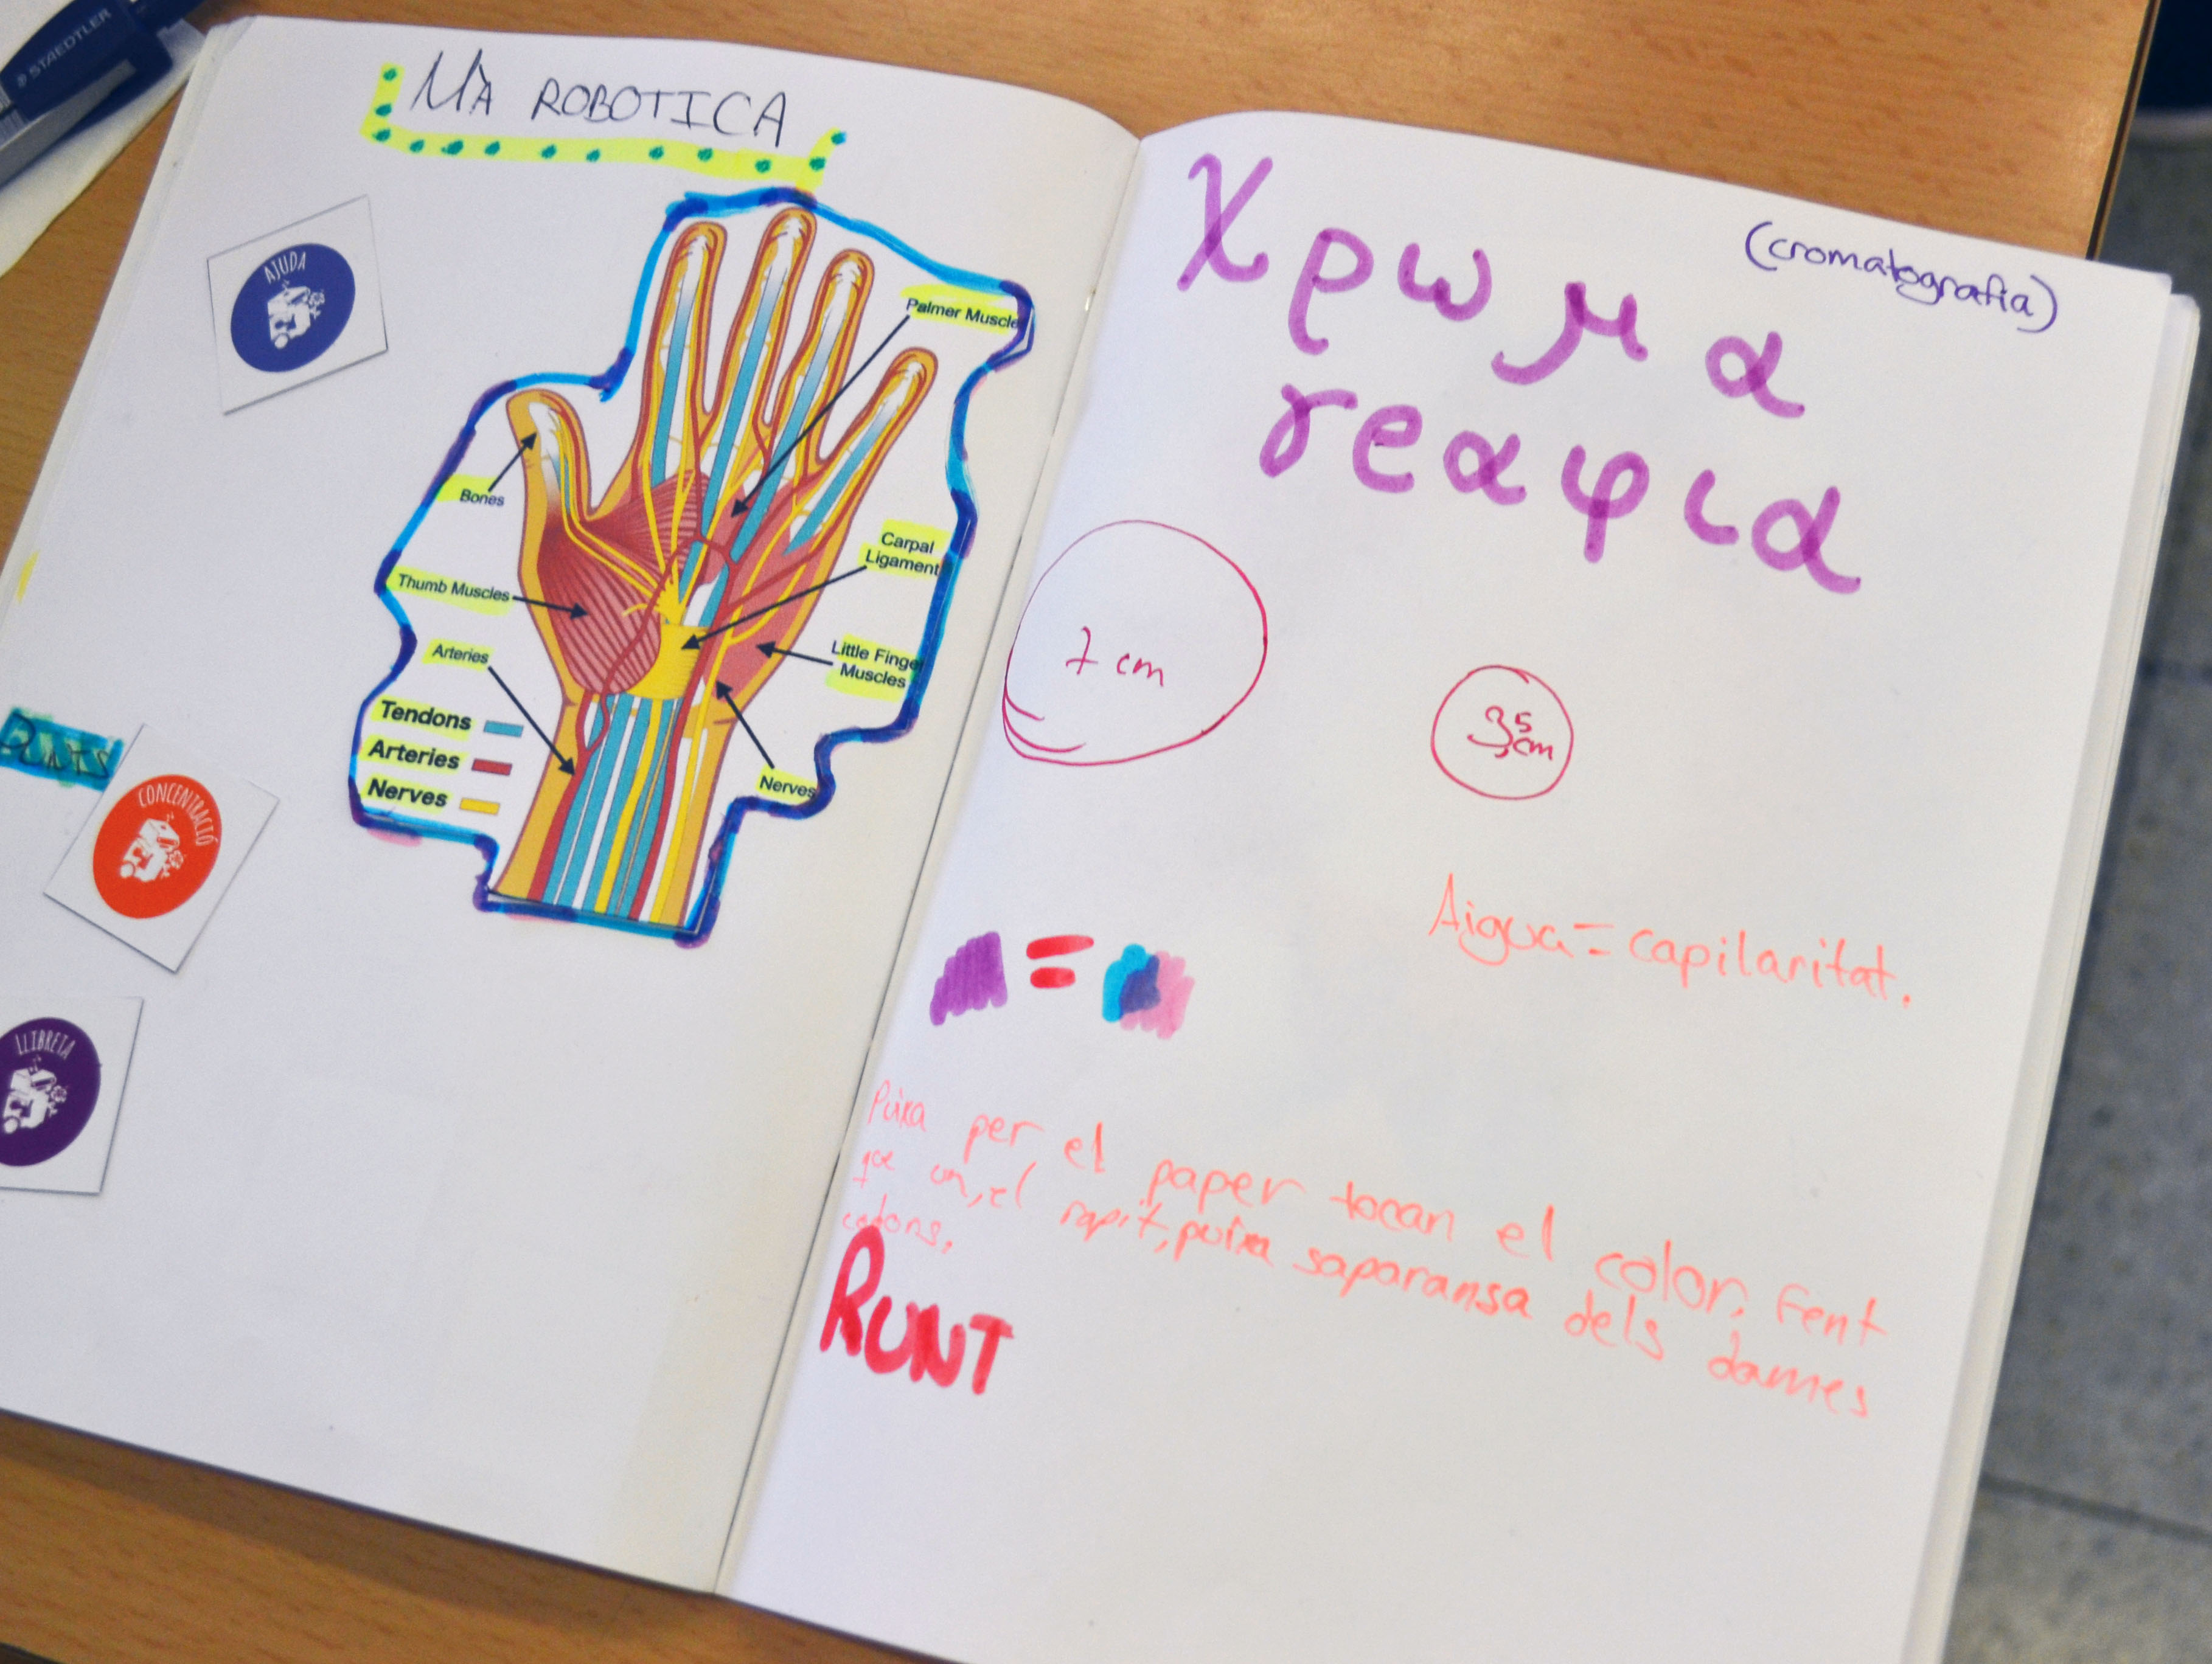 STAEDTLER
MÀ ROBOTICA
AJUDA
Palmer Muscle
Bones
Carpal
Ligament
Thumb Muscles
Arteries
Little Finge
Muscles
Tendons
Arteries
Nerves
Nerves
PUNTS
CONCENTRACIÓ
LLIBRETA
(cromatografia)
χρωμα
γραφια
7 cm
3,5 cm
Aigua = capilaritat.
=
Puixa per el paper tocan el color. Fent
que un, el rapit, puixa saparansa dels dames
RUNT